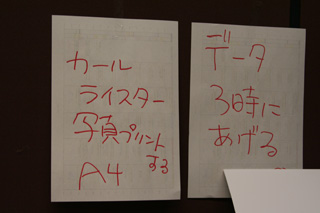 カール
ライスター
写真プリント
する
A4
データ
3時に
あげる